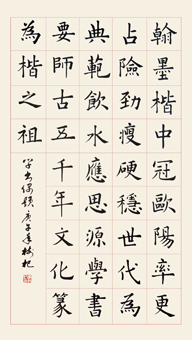 翰墨楷中冠歐陽率更
占險勁瘦硬穩世代為
典範飲水應思源學書
要師古五千年文化篆
為楷之祖
學書偶題庚子年